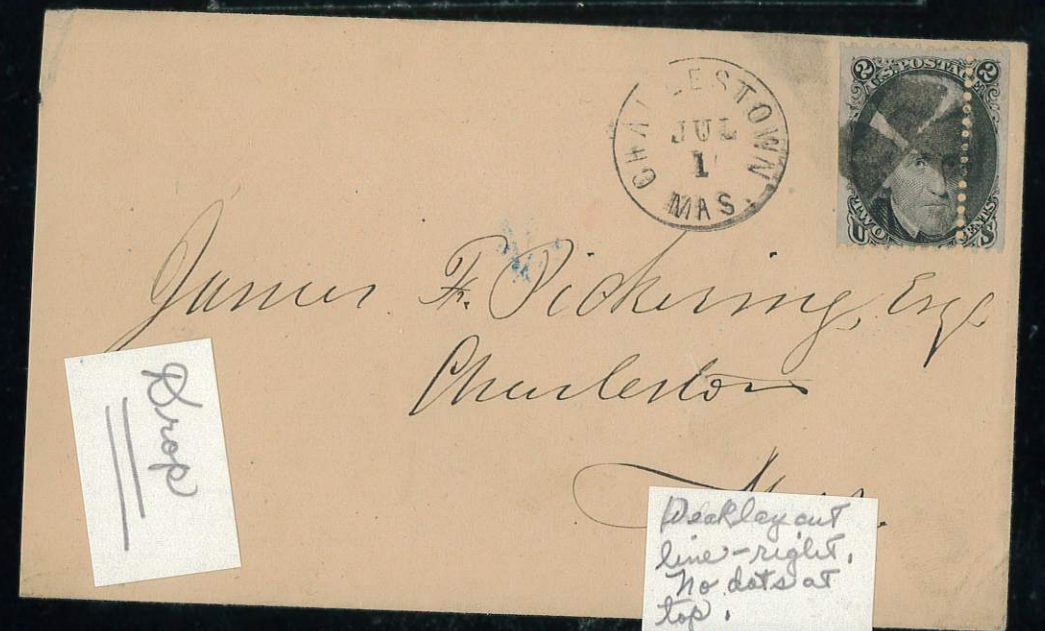 CHARLESTOWN
JUL
1
MAS.
2 U.S. POSTAGE 2
U TWO CENTS S
James F. Pickering, Esqr
Charleston
Drop
Weak lay out
line - right.
No dots at
top.